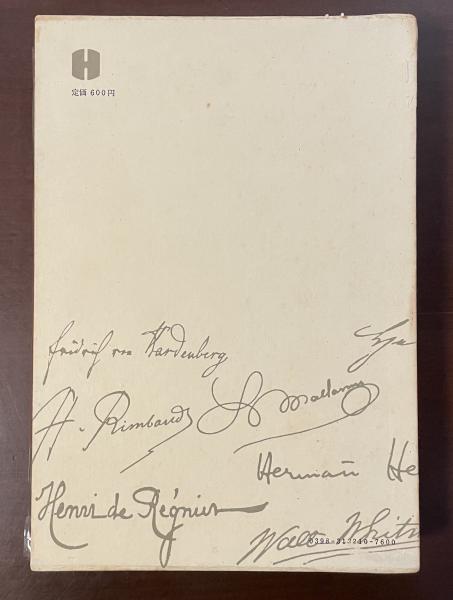 H
定価 600円
Friedrich von Hardenberg
A. Rimbaud
S Mallarmé
Hermann He
Henri de Régnier
Walt Whitm
0398-312210-7600